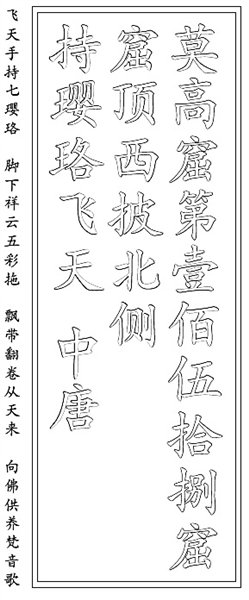 莫高窟第壹佰伍拾捌窟
窟顶西披北侧
持璎珞飞天 中唐
飞天手持七璎珞 脚下祥云五彩拖 飘带翻卷从天来 向佛供养梵音歌